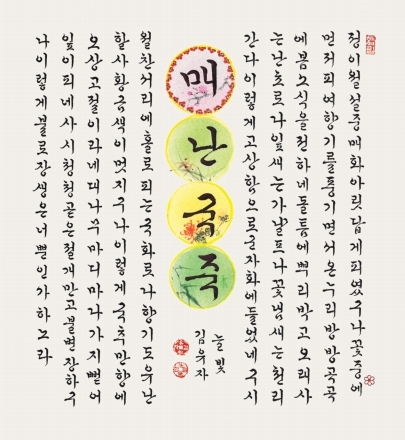 정이월설중매화아릿답게피였구나꽃중에
먼저피여향기를풍기면서온누리방방곡곡
에봄소식을전하네돌틈에뿌리박고오래사
는난초로다잎새는가날프나꽃냄새는천리
간다이렇게고상함으로군자화에들었네구시
매
난
국
죽
늘빛
김유자
월찬서리에홀로피는국화로다향기도유난
할사황금색이멋지구나이렇게국추만향에
오상고절이라네대나무마디마다가지뻗어
잎이피네사시청청곧은절개만고불변장하구
나이렇게불로장생은너뿐인가하노라